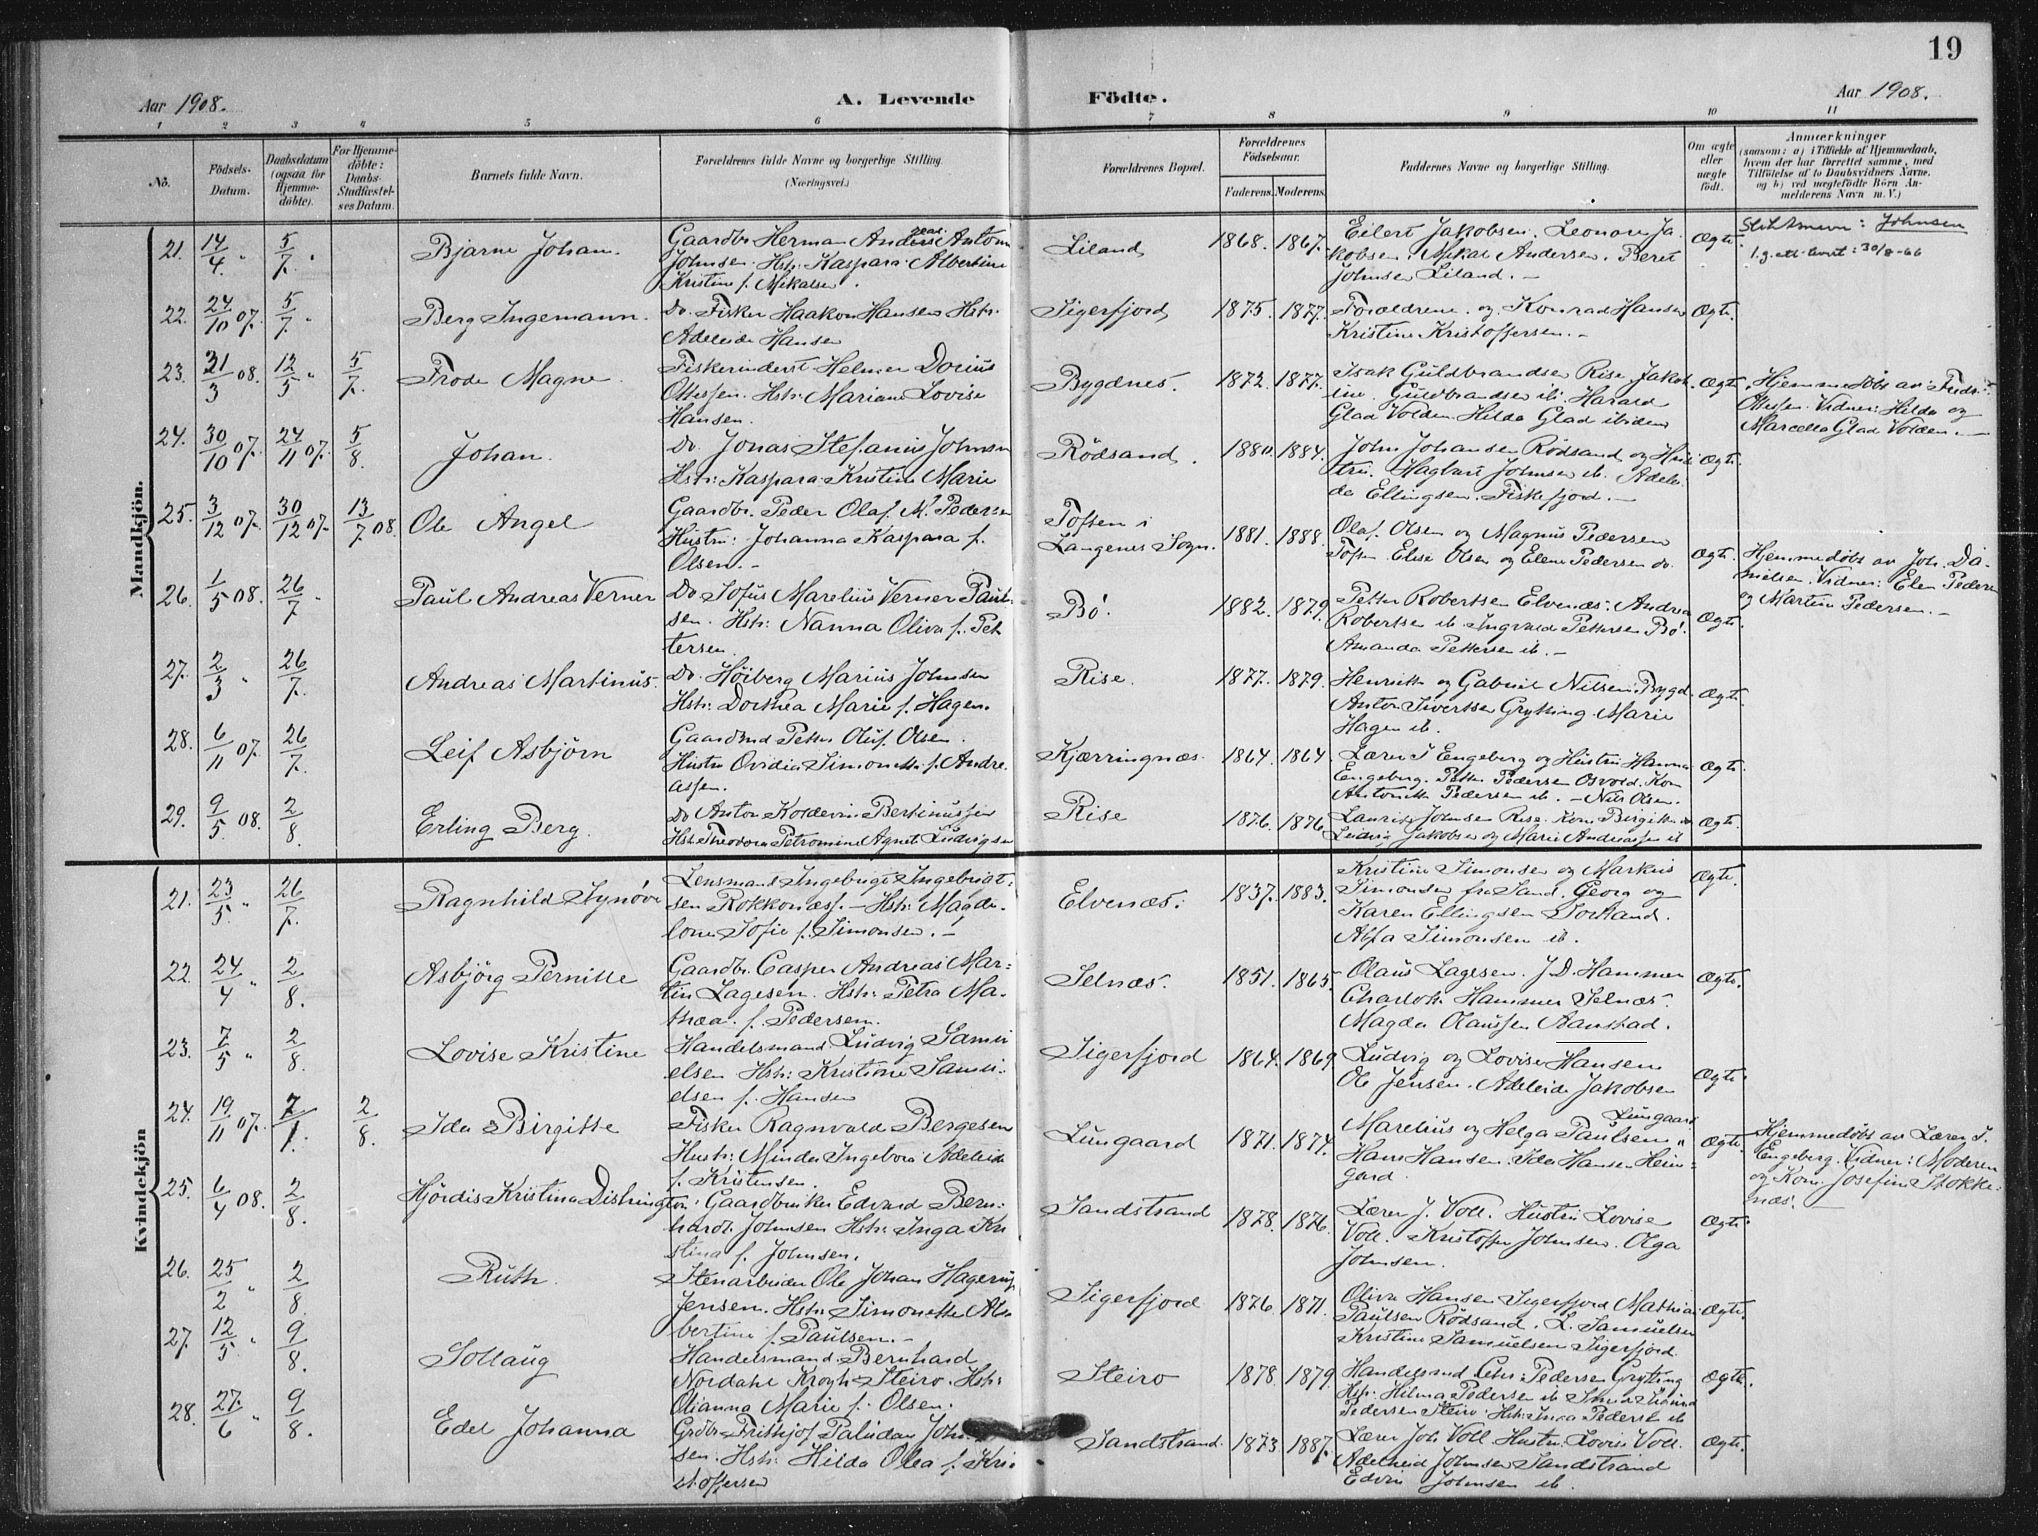 19
Aar 1908.
A. Levende
Födte.
Aar 1908.
1 2 3 4 5 6 7 8 9 10 11
No.
Födsels-Datum.
Daabsdatum (ogsaa for Hjemme-döbte).
For Hjemme-döbte: Daabs-Stadfæstel-ses Datum.
Barnets fulde Navn.
Forældrenes fulde Navne og borgerlige Stilling.
(Næringsvei.)
Forældrenes Bopæl.
Forældrenes Födselsaar.
Faderens. Moderens.
Faddernes Navne og borgerlige Stilling.
Om ægte eller uægte födt.
Anmærkninger
(saasom: a) i Tilfælde af Hjemmedaab,
hvem der har forrettet samme, med
Tilföielse af to Daabsvidners Navne,
og b) ved uægtefödte Börn An-
melderens Navn m. V.)
Mandkjön.
21. 14/4 " 5/7 " Bjarne Johan.
Gaardbr. Herman Anders Anton
Johnsen. Hstr. Kaspara Albertine
Kristine f. Mikalsen.
Liland 1868. 1867.
Eilert Jakobsen. Leonore Ja
kobsen. Mikal Andersen. Beret
Johnsen Liland. —
Ægte
Slektsnavn: Johnsen
l.g. att. bevit: 30/8-66
22. 24/10 07. 5/7 " Berg Ingemann.
Do. Fisker Haakon Hansen Hstr.
Adeleide Hansen
Sigerfjord 1875. 1877.
Forældrene og Konrad Hansen
Kristine Kristoffersen. —
Ægte.
23. 21/3 08. 12/5 " 5/7. Frode Magne.
Fiskerinderst Helmer Dorius
Ottesen. Hstr. Mariane Lovise
Hansen.
Bygdnes. 1872. 1877.
Isak Guldbrandsen Rise Jakob
ine Guldbrandsen ib. Harald
Glad Volden Hilda Glad ibidem
Ægte
Hjemmedöbt av: Fredr.
Ottesen. Vidner: Hilda og
Marcella Glad Volden. —
24. 30/10 07. 24/11 07. 5/8 Johan.
Do. Jonas Stefanius Johnsen
Hstr. Kaspara Kristine Marie
Rödsand. 1880. 1884.
John Johansen Rödsand og Hus
tru. Hagbart Johnsen ib. Adele
de Ellingsen. Fiskefjord. —
Ægte.
25. 3/12 07. 30/12 07. 13/7 08. Ole Angel
Gaardbr. Peder Olaf M. Pedersen
Hustru: Johanna Kaspara f.
Olsen. —
Toften i
Langenes Sogn. 1881. 1888.
Olaf Olsen og Magnus Pedersen
Toften Elise Olsen og Elene Pedersen do.
Ægte.
Hjemmedöbt av Joh. Da-
nielsen. Vidner: Elen Pedersen
og Martin Pedersen. —
26. 1/5 08. 26/7 " Paul Andreas Verner
Do Sofus Marelius Verner Paul-
sen. Hstr: Nanna Oliva f. Pet
tersen.
Bö. 1882. 1879.
Petter Robertsen Elvenæs. Andrea
Robertsen ib. Ingvald Pettersen Bö.
Amanda Pettersen ib. —
Ægte.
27. 2/3 " 26/7. Andreas Martinus.
Do. Höiberg Marius Johnsen
Hstr: Dorthea Marie f. Hagen.
Rise. 1877. 1879.
Henrikke og Gabriel Nilsen. Bygd.
Anton Sivertsen Grytting. Marie
Hagen ib.
Ægte.
28. 6/11 07. 26/7. Leif Asbjörn
Gaardmd Petter Oluf Olsen.
Hustru Ovidia Simonette f. Andre
assen.
Kjærringnæs 1864. 1864.
Lærer I Engeberg og Hustru Hanna
Engeberg. Petter Pedersen Osvold. Kon
Antonette Pedersen ib. — Nils Olsen.
Ægte.
29. 9/5. 08. 2/8. Erling Berg.
Do Anton Koldevin Bertinussen
Hstr. Theodora Petromine Agnete Ludvigsen
Rise 1876. 1876.
Laurits Johnsen Rise. Kone Birgitte do
Ludvig Jakobsen og Marie Andreassen ib
Ægte.
Kvindekjön
21. 23/5. " 26/7. Ragnhild Synöve
Lensmand Ingebrigt Ingebrigt-
sen Rokkonæs. — Hstr. Magda
lone Sofie f. Simonsen. —
Elvenæs. 1837. 1883.
Kristine Simonsen og Markus
Simonsen fra Sand. Georg og
Karen Ellingsen Sortland.
Alfa Simonsen ib.
Ægte.
22. 24/4 " 2/8. Asbjörg Pernille
Gaardbr. Casper Andreas Mar-
tin Lagesen. Hstr. Petra Ma-
thea. f. Pedersen.
Selnæs. 1851. 1865.
Olaus Lagesen. J. D. Hammer
Charlotte Hammer Selnæs.
Magda Olaussen Aanstad.
Ægte.
23. 7/5 " 2/8. Lovise Kristine
Handelsmand Ludvig Samu
elsen Hstr: Kristine Samu-
elsen f. Hansen
Sigerfjord 1864. 1869
Ludvig og Lovise Hansen
Ole Jensen. Adeleide Jakobsen
Ægte.
24. 19/11 07. 7/1. 2/8. Ida Birgitte
Fisker Ragnvald Bergesen
Hustr: Minda Ingebora Adeleide
f. Kristensen.
Lungaard 1871. 1874.
Marelius og Helga Paulsen Lungaard
Hans Hansen. Ida Hansen Heim-
gard.
Ægte.
Hjemmedöbt av Lærer I.
Engeberg. Vidner: Moderen
og Kone Josefine Stokke-
næs.
25. 6/4 08. 2/8. Hjördis Kristina Dishington
Gaardbruker Edvard Bern-
hardt Johnsen Hstr: Inga Kri
stina f. Johnsen.
Sandstrand 1878. 1876.
Lærer J. Voll. Hustru Lovise
Voll. Kristoffer Johnsen. Olga
Johnsen.
Ægte.
26. 25/2 " 2/8. Ruth.
Stenarbeider Ole Johan Hagerup
Jensen. Hstr: Simonette Al-
bertine f. Paulsen. —
Sigerfjord 1876. 1871.
Oliva Hansen Sigerfjord Mathias
Paulsen Rödsand. L. Samuelsen
Kristine Samuelsen Sigerfjord.
Ægte.
27. 12/5 " 9/8. Sollaug
Handelsmand Bernhard
Nordahl Krogh Steiro. Hstr:
Olianna Marie f. Olsen.
Steiro 1878. 1879.
Handelsmd Chr. Pedersen Grytting
Hstr. Hilma Pedersen ib
Pedersen Steiro. Hstr: Inga Pedersen ib
Ægte.
28. 27/6 " 9/8. Edel Johanna
Grdbr. Frithjof Paludan John
sen. Hstr: Hilda Olea f. Kri
stoffersen
Sandstrand. 1873 1887.
Lærer Joh Voll Hustru Lovise Voll.
Adelheid Johnsen Sandstrand
Edvin Johnsen ib.
Ægte.